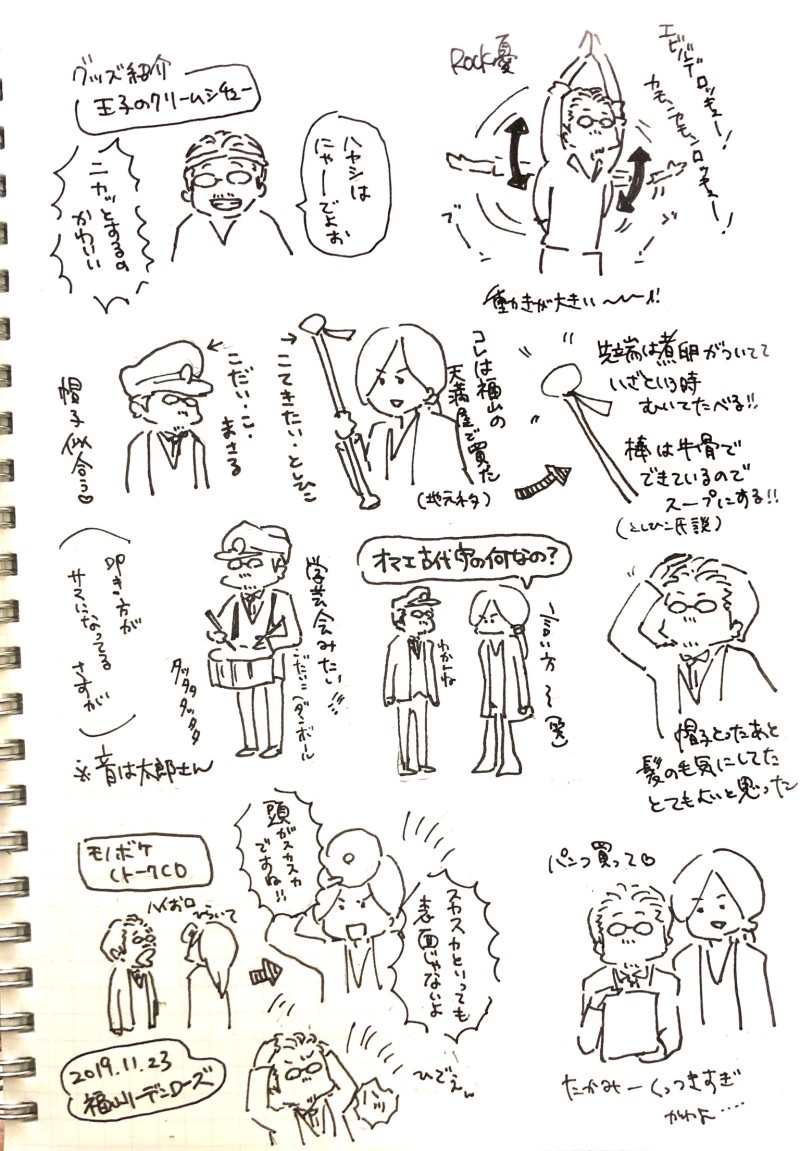 グッズ紹介
王子のクリームシチュー
ハヤシは
にゃーでよお
ニカッとするの
かわいい
Rock憂
エビバデロッキュー!
カモンカモンロッキュー!
動きが大きい〜〜!!
帽子似合う♡
こだい・こ・まさる
こてきたい・としひこ
コレは福山の
天満屋で買った
(地元ネタ)
先端は煮卵がついてて
いざという時
むいてたべる!!
棒は牛骨で
できているので
スープにする!!
(としひこ氏説)
叩き方が
サマになってる
さすが
タッタタタッタタ
学芸会みたい
※音は太郎さん
オマエ古代守の何なの?
言い方〜(笑)
帽子とったあと
髪の毛気にしてた
とてもよいと思った
モノボケ
(トークCD
頭がスカスカ
ですね!!
スカスカといっても
表面じゃないよ
ひでぇw
パンフ買って♡
たかみーくっつきすぎ
かわよ…‥
2019.11.23
福山リーデンローズ